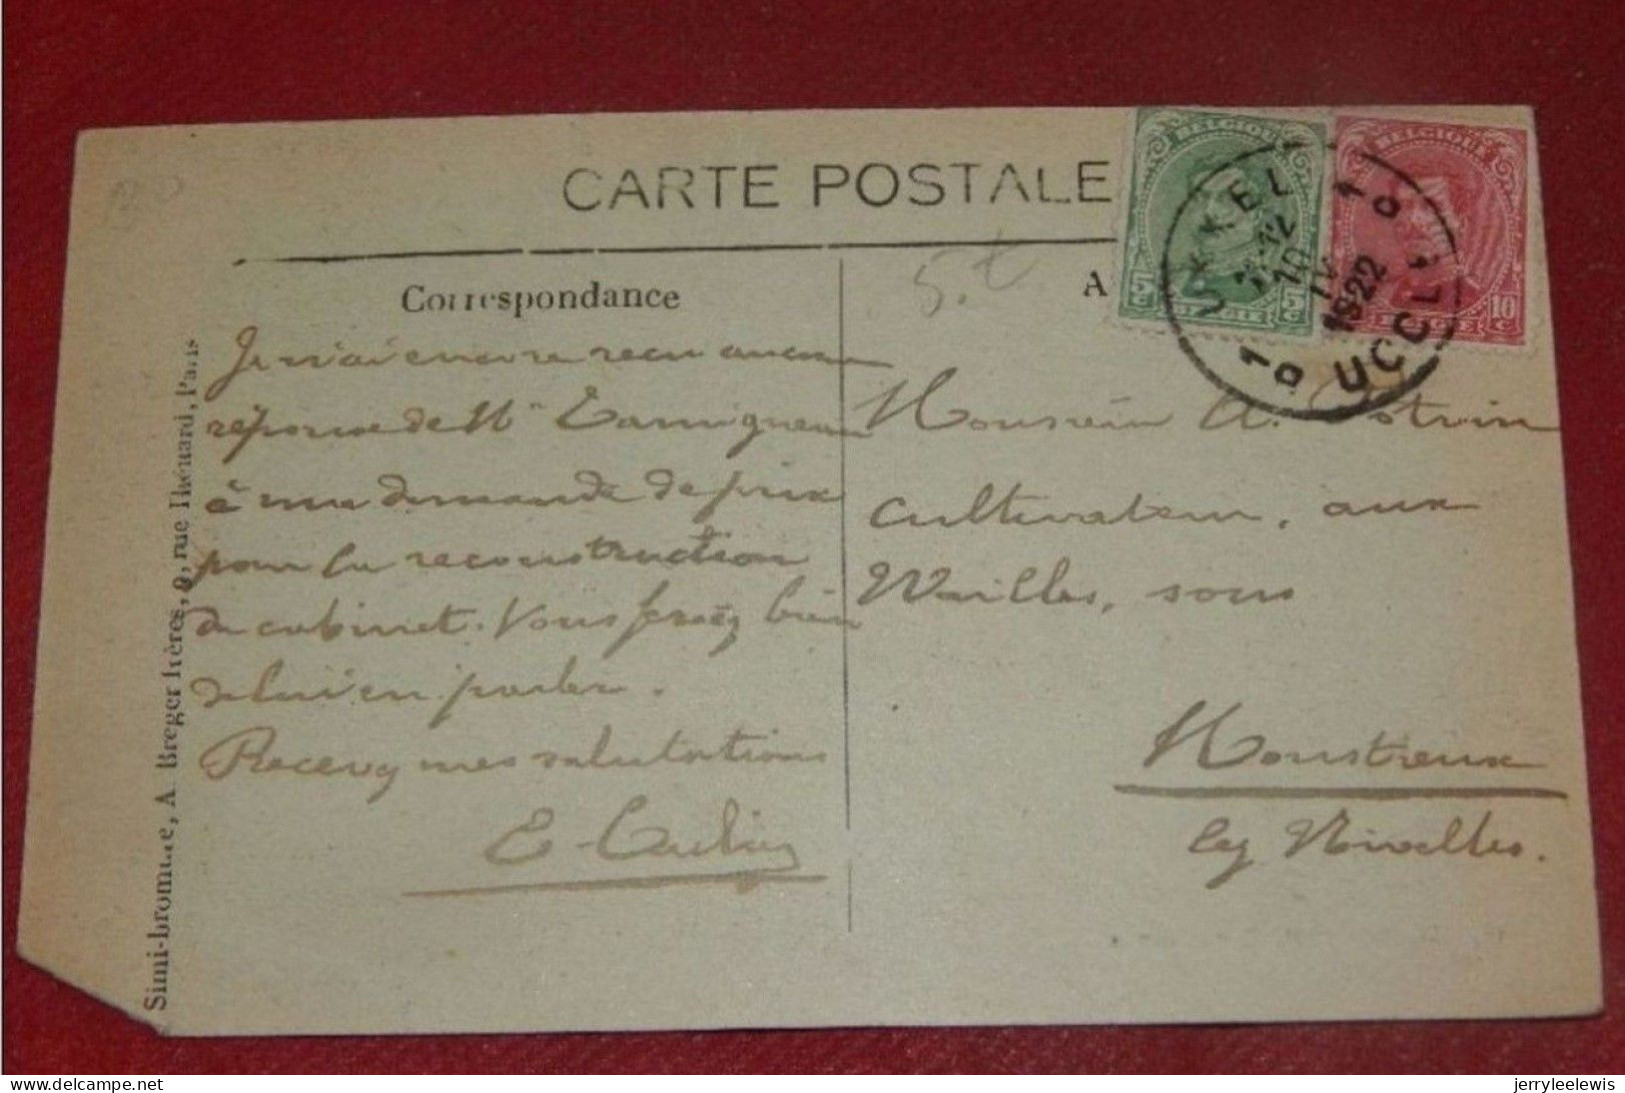 CARTE POSTALE
BELGIQUE
5c 5c
BELGIË
BELGIQUE
10 c
BELGIË
UKKEL 1D
11-12
10
IV
1922
1D UCCLE
Correspondance
5.t
A
Je n'ai encore reçu aucune
réponse de Mr
à ma demande de prix
pour la reconstruction
du cabinet. Vous feriez bien
de lui en parler.
Recevez mes salutations
E.
Monsieur A.
cultivateur, aux
Wailles, sous
Monstreux
lez Nivelles.
Simi-bromure, A. Breger frères, 9, rue Thénard, Paris
delcampe.net
jerryleelewis